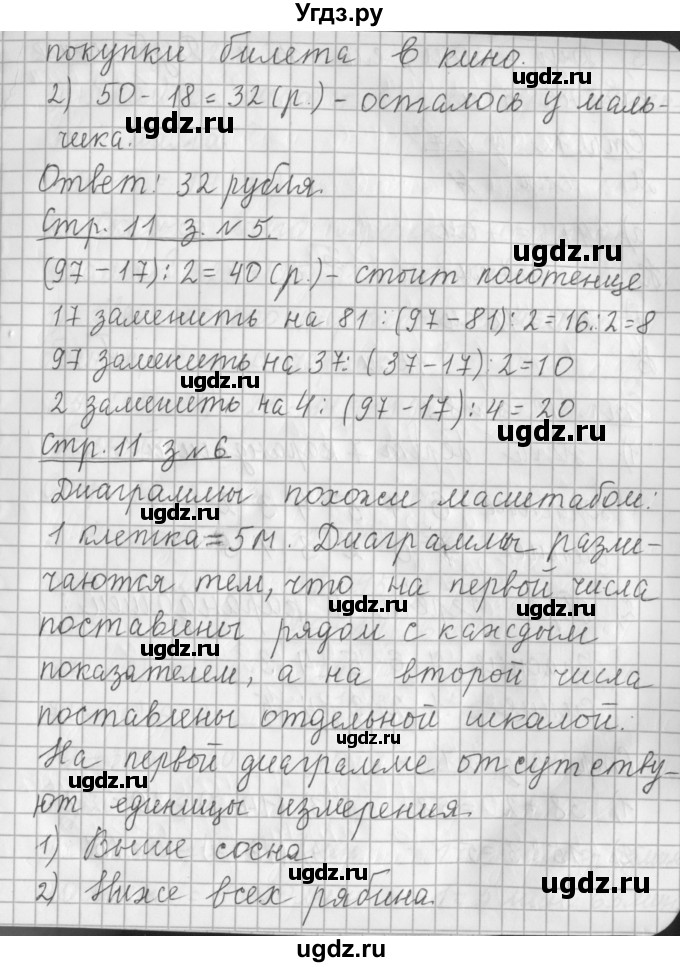 Угдз.ру
покупки билета в кино.
2) 50 - 18 = 32 (р.) - осталось у маль-
ugdz.ru ugdz.ru
чика.
Ответ: 32 рубля.
Стр. 11 з. № 5.
ugdz.ru ugdz.ru
(97 - 17) : 2 = 40 (р.) - стоит полотенце
17 заменить на 81 : (97 - 81) : 2 = 16 : 2 = 8
97 заменить на 37: (37 - 17) : 2 = 10
ugdz.ru
2 заменить на 4 : (97 - 17) : 4 = 20
ugdz.ru
Стр. 11 з № 6
Диаграммы похожи масштабом:
ugdz.ru
1 клетка = 5м. Диаграммы разли-
чаются тем, что на первой числа
ugdz.ru ugdz.ru
поставины рядом с каждым
ugdz.ru
показателем, а на второй числа
поставлены отдельной шкалой.
ugdz.ru
На первой диаграмме отсутству-
ugdz.ru
ют единицы измерения.
1) Выше сосна
ugdz.ru
2) Ниже всех рябина.
ugdz.ru